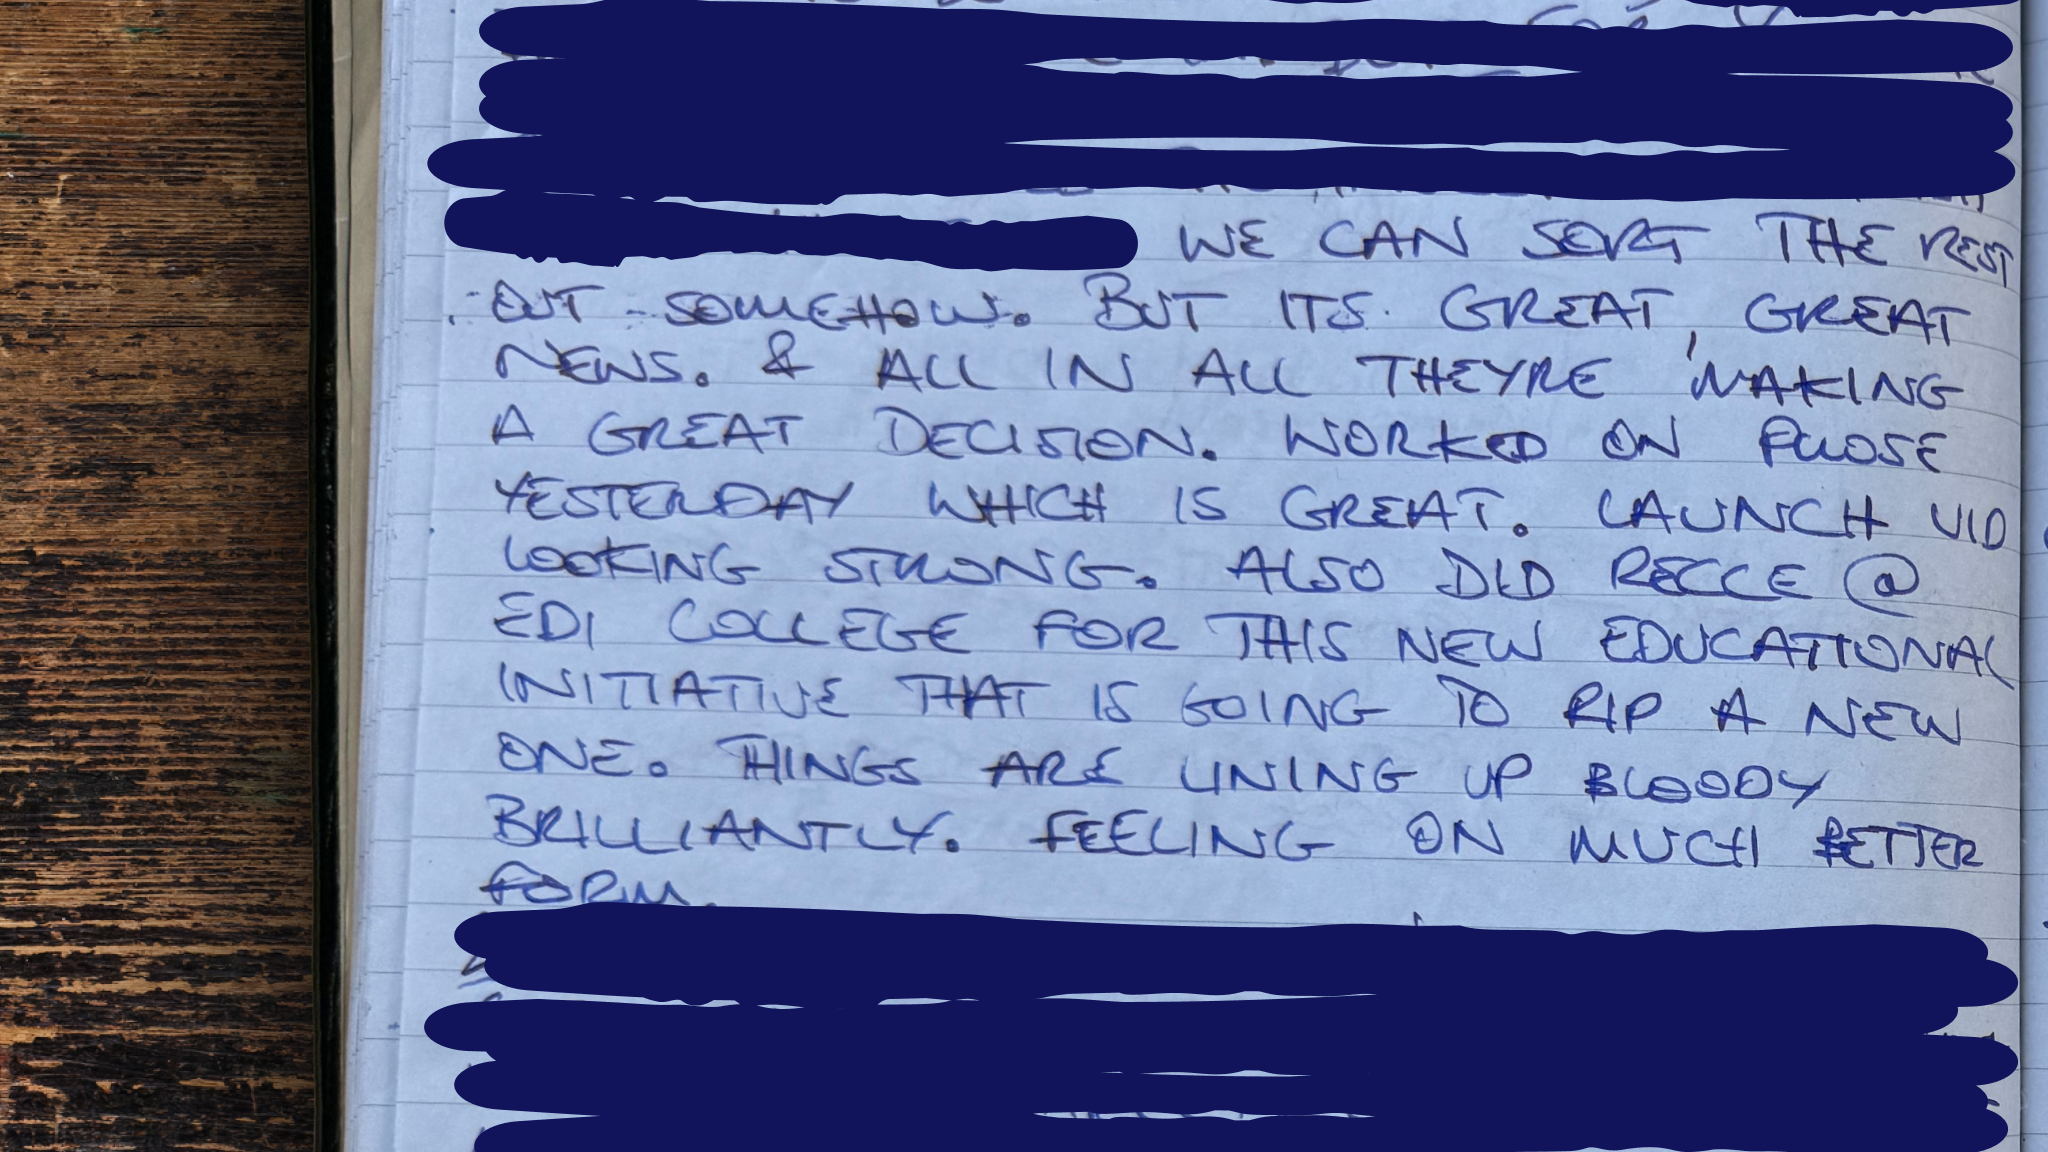 WE CAN SORT THE REST
OUT SOMEHOW. BUT ITS GREAT, GREAT
NEWS. & ALL IN ALL THEYRE MAKING
A GREAT DECISION. WORKED ON
YESTERDAY WHICH IS GREAT. LAUNCH VID
LOOKING STRONG. ALSO DID RECCE @
EDI COLLEGE FOR THIS NEW EDUCATIONAL
INITIATIVE THAT IS GOING TO RIP A NEW
ONE. THINGS ARE LINING UP BLOODY
BRILLIANTLY. FEELING ON MUCH BETTER
FORM.